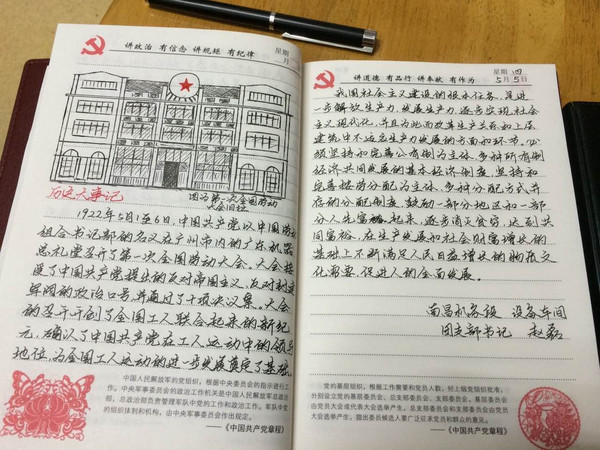 讲政治 有信念 讲规矩 有纪律
星期
月
图为第一次全国劳动
大会旧址
历史大事记
1922年5月1至6日,中国共产党以中国劳动
组合书记部的名义在广州市内的广东机器
总礼堂召开了第一次全国劳动大会。大会接
受了中国共产党提出的反对帝国主义、反对封建
军阀的政治口号,并通过了十项决议案。大会
的召开开创了全国工人联合起来的新纪
元,确认了中国共产党在工人运动中的领导
地位,为全国工人运动的进一步发展奠定了基础。
中国人民解放军的党组织,根据中央委员会的指示进行工
作。中央军事委员会的政治工作机关是中国人民解放军总政治
部,总政治部负责管理军队中党的工作和政治工作。军队中党
的组织体制和机构,由中央军事委员会作出规定。
——《中国共产党章程》
讲道德 有品行 讲奉献 有作为
星期 四
5月5日
我国社会主义建设的根本任务,是进
一步解放生产力,发展生产力,逐步实现社会
主义现代化,并且为此而改革生产关系和上层
建筑中不适应生产力发展的方面和环节。必
须坚持和完善公有制为主体、多种所有制
经济共同发展的基本经济制度,坚持和
完善按劳分配为主体、多种分配方式并
存的分配制度,鼓励一部分地区和一
部分人先富起来,逐步消灭贫穷,达到共
同富裕,在生产发展和社会财富增长的
基础上不断满足人民日益增长的物质文
化需要,促进人的全面发展。
南昌机务段 设备车间
团支部书记 赵磊
党的基层组织,根据工作需要和党员人数,经上级党组织批准,
分别设立党的基层委员会、总支部委员会、支部委员会。基层委员会
由党员大会或代表大会选举产生,总支部委员会和支部委员会由党员
大会选举产生,提出委员候选人要广泛征求党员和群众的意见。
——《中国共产党章程》